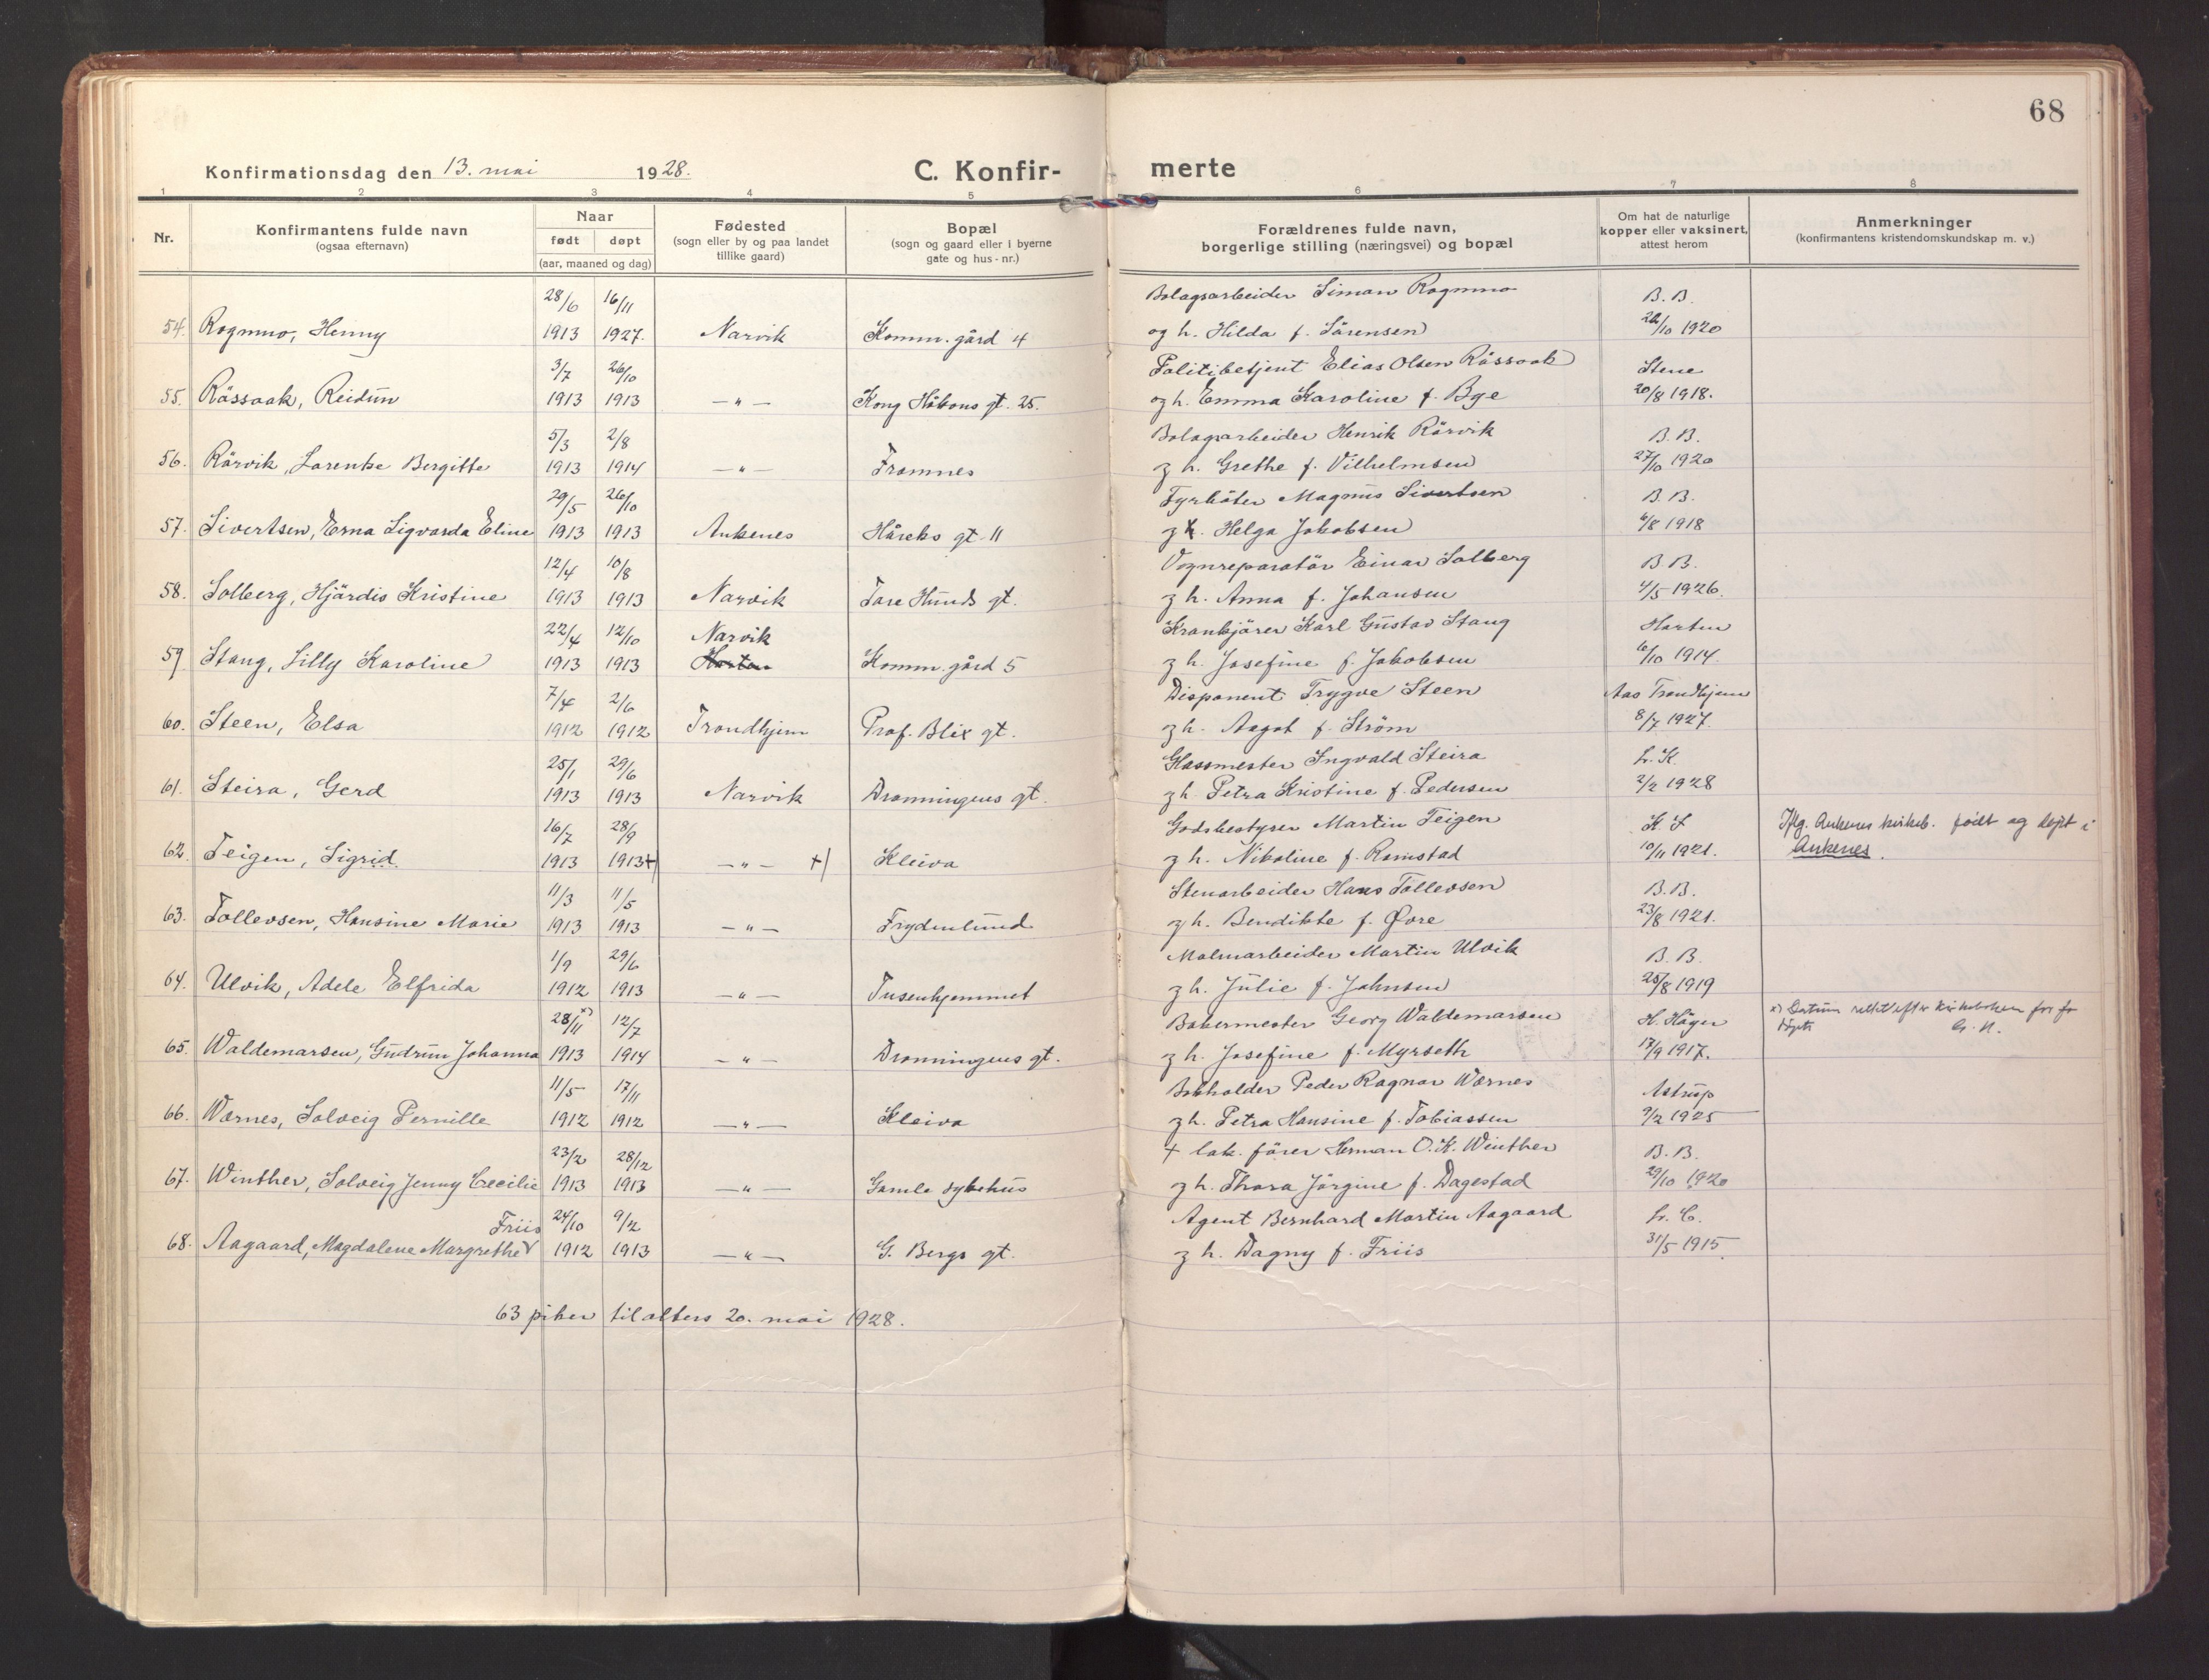 68
Konfirmationsdag den 13. mai 1928.
C. Konfir-
merte
1 2 3 4 5 6 7 8
Nr.
Konfirmantens fulde navn
(ogsaa efternavn)
Naar
født døpt
(aar, maaned og dag)
Fødested
(sogn eller by og paa landet
tillike gaard)
Bopæl
(sogn og gaard eller i byerne
gate og hus-nr.)
Forældrenes fulde navn,
borgerlige stilling (næringsvei) og bopæl
Om hat de naturlige
kopper eller vaksinert,
attest herom
Anmerkninger
(konfirmantens kristendomskundskap m. v.)
28/6 16/11 Bolagsarbeider Simon Rognmo B. B.
54. Rognmo, Henny 1913 1927. Narvik Komm. gård 4 og h. Hilda f. Sörensen /10 1920
3/7 26/10 Politibetjent Elias Olsen Råssaak Stene
55. Råssaak, Reidun 1913 1913 — " — Kong Håkons gt. 25. og h. Emma Karoline f. Bge 20/8 1918.
5/3 2/8 Bolagsarbeider Henrik Rörvik B. B.
56. Rörvik, Larentse Bergitte 1913 1914 — " — Framnes og h. Grethe f. Vilhelmsen 27/10 1920
29/5 26/10 Fyrböter Magnus Sivertsen B. B.
57. Sivertsen, Erna Sigvarda Eline 1913 1913 Ankenes Håreks gt. 11 og h. Helga Jakobsen 6/8 1918
12/4 10/8 Vognreparatör Einar Solberg B. B.
58. Solberg, Hjördis Kristine 1913 1913 Narvik Tore Hunds gt. og h. Anna f. Johansen 4/5 1926.
22/4 12/10 Narvik Krankjörer Karl Gustav Stang Horten
59. Stang, Lilly Karoline 1913 1913 Horten Komm. gård 5 og h. Josefine f. Jakobsen 6/10 1914.
7/4 2/6 Disponent Trygve Steen Aas Trondhjem
60. Steen, Elsa 1912 1912 Trondhjem Prof. Blix gt. og h. Aagot f. Ström 8/7 1927.
25/1 29/6 Glassmester Ingvald Steira L. K.
61. Steira, Gerd 1913 1913 Narvik Dronningens gt. og h. Petra Kristine f. Pedersen 2/2 1928
16/7 28/9 Godsbestyrer Martin Teigen K. L Iflg. Ankenes kirkeb. født og døpt i
62. Teigen, Sigrid 1913 1913 +) — " — +) Kleiva og h. Nikoline f. Ramstad 10/11 1921. Ankenes.
11/3 11/5 Stenarbeider Hans Tollevsen B. B.
63. Tollevsen, Hansine Marie 1913 1913 — " — Frydenlund og h. Bendikte f. Øvre 23/8 1921.
1/9 29/6 Malmarbeider Martin Ulvik B. B.
64. Ulvik, Adele Elfrida 1912 1913 — " — Tusenhjemmet og h. Julie f. Johnsen 25/8 1919
28/11 x) 12/7 Bakermester Georg Waldemarsen H. Häger x) Datum rettet efter kirkeboken for
65. Waldemarsen, Gudrun Johanna 1913 1914 — " — Dronningens gt. og h. Josefine f. Myrseth 17/9 1917.
11/5 17/11 Bokholder Peder Ragnar Wærnes Astrup
66. Wærnes, Solveig Pernille 1912 1912 — " — Kleiva og h. Petra Hansine f. Tobiassen 9/2 1925
23/2 28/12 + lok. förer Herman O. K. Winther B. B.
67. Winther, Solveig Jenny Cecilie 1913 1913 — " — Gamle sykehus og h. Thora Jörgine f. Dagestad 29/10 1920
Friis 24/10 9/2 Agent Bernhard Martin Aagaard L. C.
68. Aagaard, Magdalene Margrethe 1912 1913 — " — G. Bergs gt. og h. Dagny f. Friis 31/5 1915.
63 piker til alters 20. mai 1928.